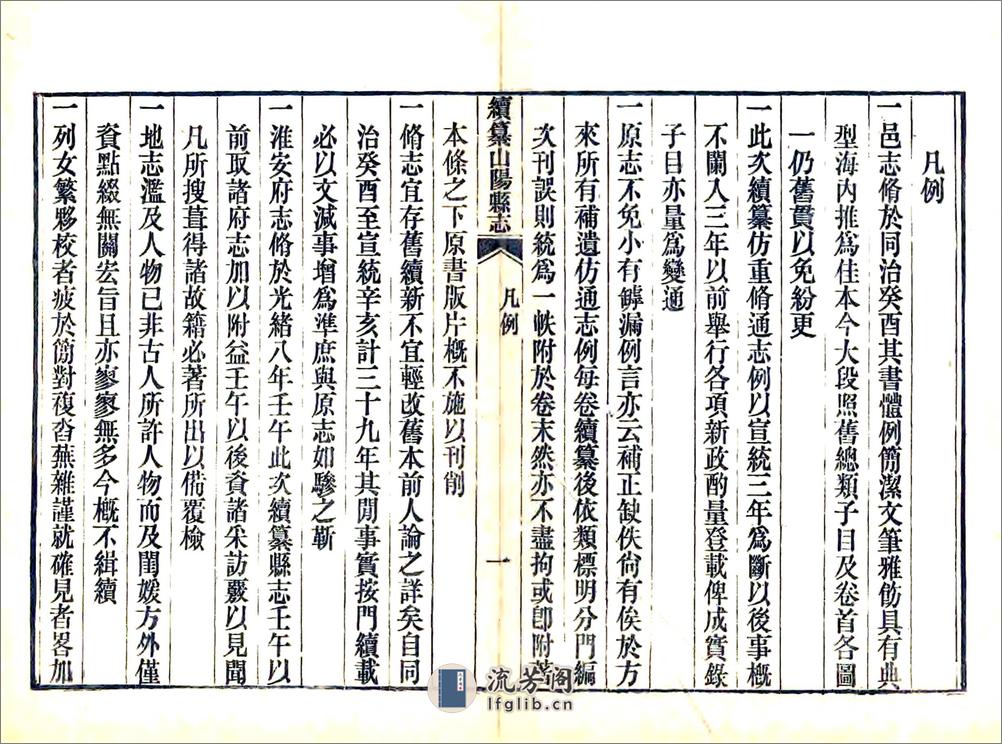 凡例
一邑志脩於同治癸酉其書體例簡潔文筆雅飭具有典
型海內推爲佳本今大段照舊總類子目及卷首各圖
一仍舊貫以免紛更
一此次續纂仿重脩通志例以宣統三年爲斷以後事概
不闌入三年以前舉行各項新政酌量登載俾成實錄
子目亦量爲變通
一原志不免小有罅漏例言亦云補正缺佚尙有俟於方
來所有補遺仿通志例每卷續纂後依類標明分門編
次刊誤則統爲一帙附於卷末然亦不盡拘或卽附著
續纂山陽縣志
凡例
一
本條之下原書版片槪不施以刊削
一脩志宜存舊續新不宜輕改舊本前人論之詳矣自同
治癸酉至宣統辛亥計三十九年其閒事實按門續載
必以文減事增爲準庶與原志如驂之靳
一淮安府志脩於光緒八年壬午此次續纂縣志壬午以
前取諸府志加以附益壬午以後資諸采訪覈以見聞
凡所搜葺得諸故籍必著所出以備覆檢
一地志濫及人物已非古人所許人物而及閨媛方外僅
資點綴無關宏旨且亦寥寥無多今概不緝續
一列女繁夥校者疲於簡對複沓蕪雜謹就確見者畧加
流芳阁
lfglib.cn